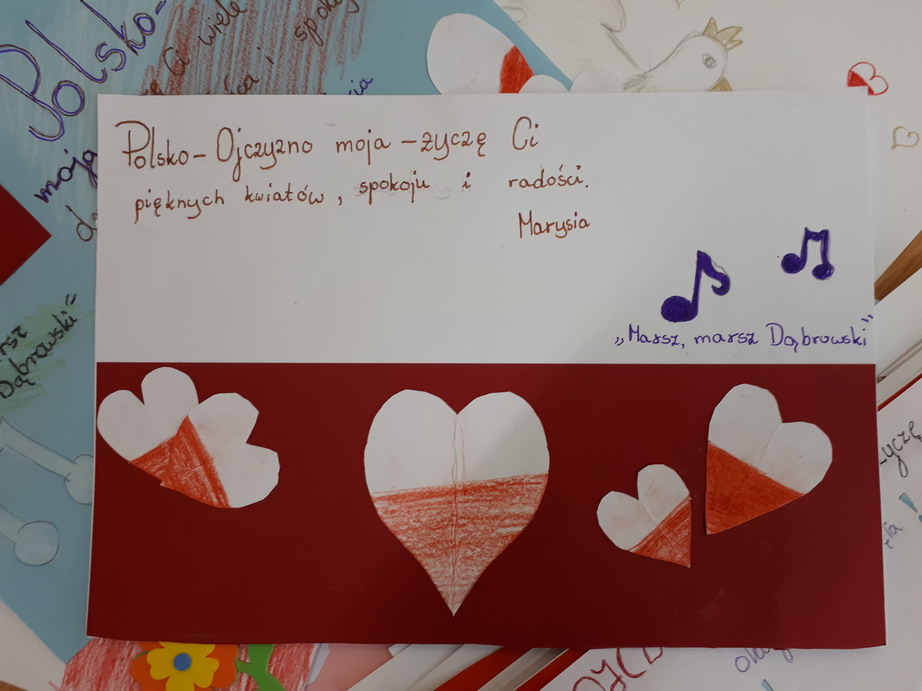 Polsko- Ojczyzno moja -życzę Ci
pięknych kwiatów, spokoju i radości.
Marysia
„Marsz, marsz Dąbrowski"
Polsko-
moja
Ci wiele
i
Dąbrowski"
-życzę